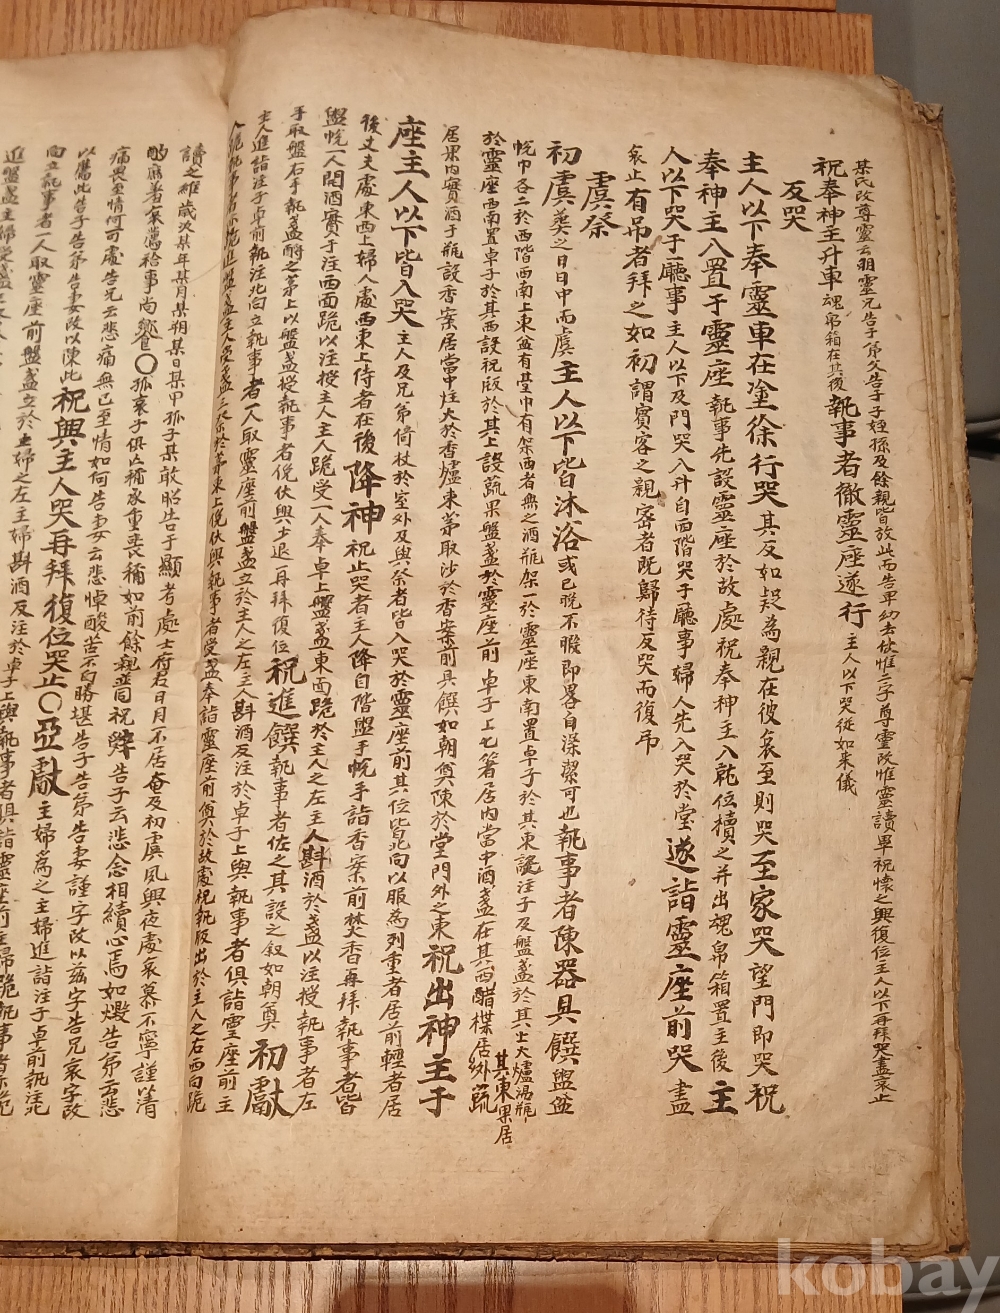 某氏改尊靈云羽靈兄告子弟父告子子姪孫及餘親皆放此而告卑幼去伏惟二字尊靈改惟靈讀畢祝懷之興復位主人以下再拜哭盡哀止
祝奉神主升車魂帛箱在其後執事者徹靈座遂行主人以下哭從如来儀
反哭
主人以下奉靈車在塗徐行哭其反如疑為親在彼哀至則哭至家哭望門即哭祝
奉神主入置于靈座執事先設靈座於故處祝奉神主入就位櫝之并出魂帛箱置主後主
人以下哭于廳事主人以下及門哭入升自西階哭于廳事婦人先入哭於堂遂詣靈座前哭盡
哀止有吊者拜之如初謂賓客之親密者既歸待反哭而復吊
虞祭
初虞葬之日日中而虞主人以下皆沐浴或已晚不暇即畧自澡潔可也執事者陳器具饌盥盆
帨巾各二於西階西南上東盆有臺巾有架西者無之酒瓶架一於靈座東南置卓子於其東設注子及盤盞於其上火爐湯瓶
於靈座西南置卓子於其西設祝版於其上設蔬果盤盞於靈座前卓子上匕箸居內當中酒盞在其西醋楪居外蔬其東果居
居果內實酒于瓶設香案居當中炷火於香爐束茅聚沙於香案前具饌如朝奠陳於堂門外之東祝出神主于
座主人以下皆入哭主人及兄弟倚杖於室外及與祭者皆入哭於靈座前其位皆北向以服為列重者居前輕者居
後丈夫處東西上婦人處西東上侍者在後降神祝止哭者主人降自階盥手帨手詣香案前焚香再拜執事者皆
盥帨一人開酒實于注西面跪以注授主人主人跪受一人奉卓上盤盞東面跪於主人之左主人斟酒於盞以注授執事者左
手取盤右手執盞酹之茅上以盤盞授執事者俛伏興少退再拜復位祝進饌執事者佐之其設之叙如朝奠初獻
主人進詣注子卓前執注北向立執事者一人取靈座前盤盞立於主人之左主人斟酒反注於卓子上與執事者俱詣靈座前主
人跪執事者亦跪進盤盞主人受盞三祭於茅束上俛伏興執事者受盞奉詣靈座前奠於故處祝執版出於主人之右西向跪
讀之維歲次某年某月某朔某日某甲孤子某敢昭告于顯考處士府君日月不居奄及初虞夙興夜處哀慕不寧謹以清
酌庶羞哀薦祫事尚饗〇孤哀子俱亡稱承重喪稱如前餘親並同祝辭告子云悲念相續心焉如燬告弟云悲
痛畏至情何可處告兄云悲痛無已至情如何告妻云悲悼酸苦不自勝堪告子告弟告妻謹字改以茲字告兄哀字改
以薦此告子告弟告妻改以陳此祝興主人哭再拜復位哭止〇亞獻主婦為之主婦進詣注子卓前執注北
向立執事者一人取靈座前盤盞立於主婦之左主婦斟酒反注於卓子上與執事者俱詣靈座前主婦跪執事者亦跪